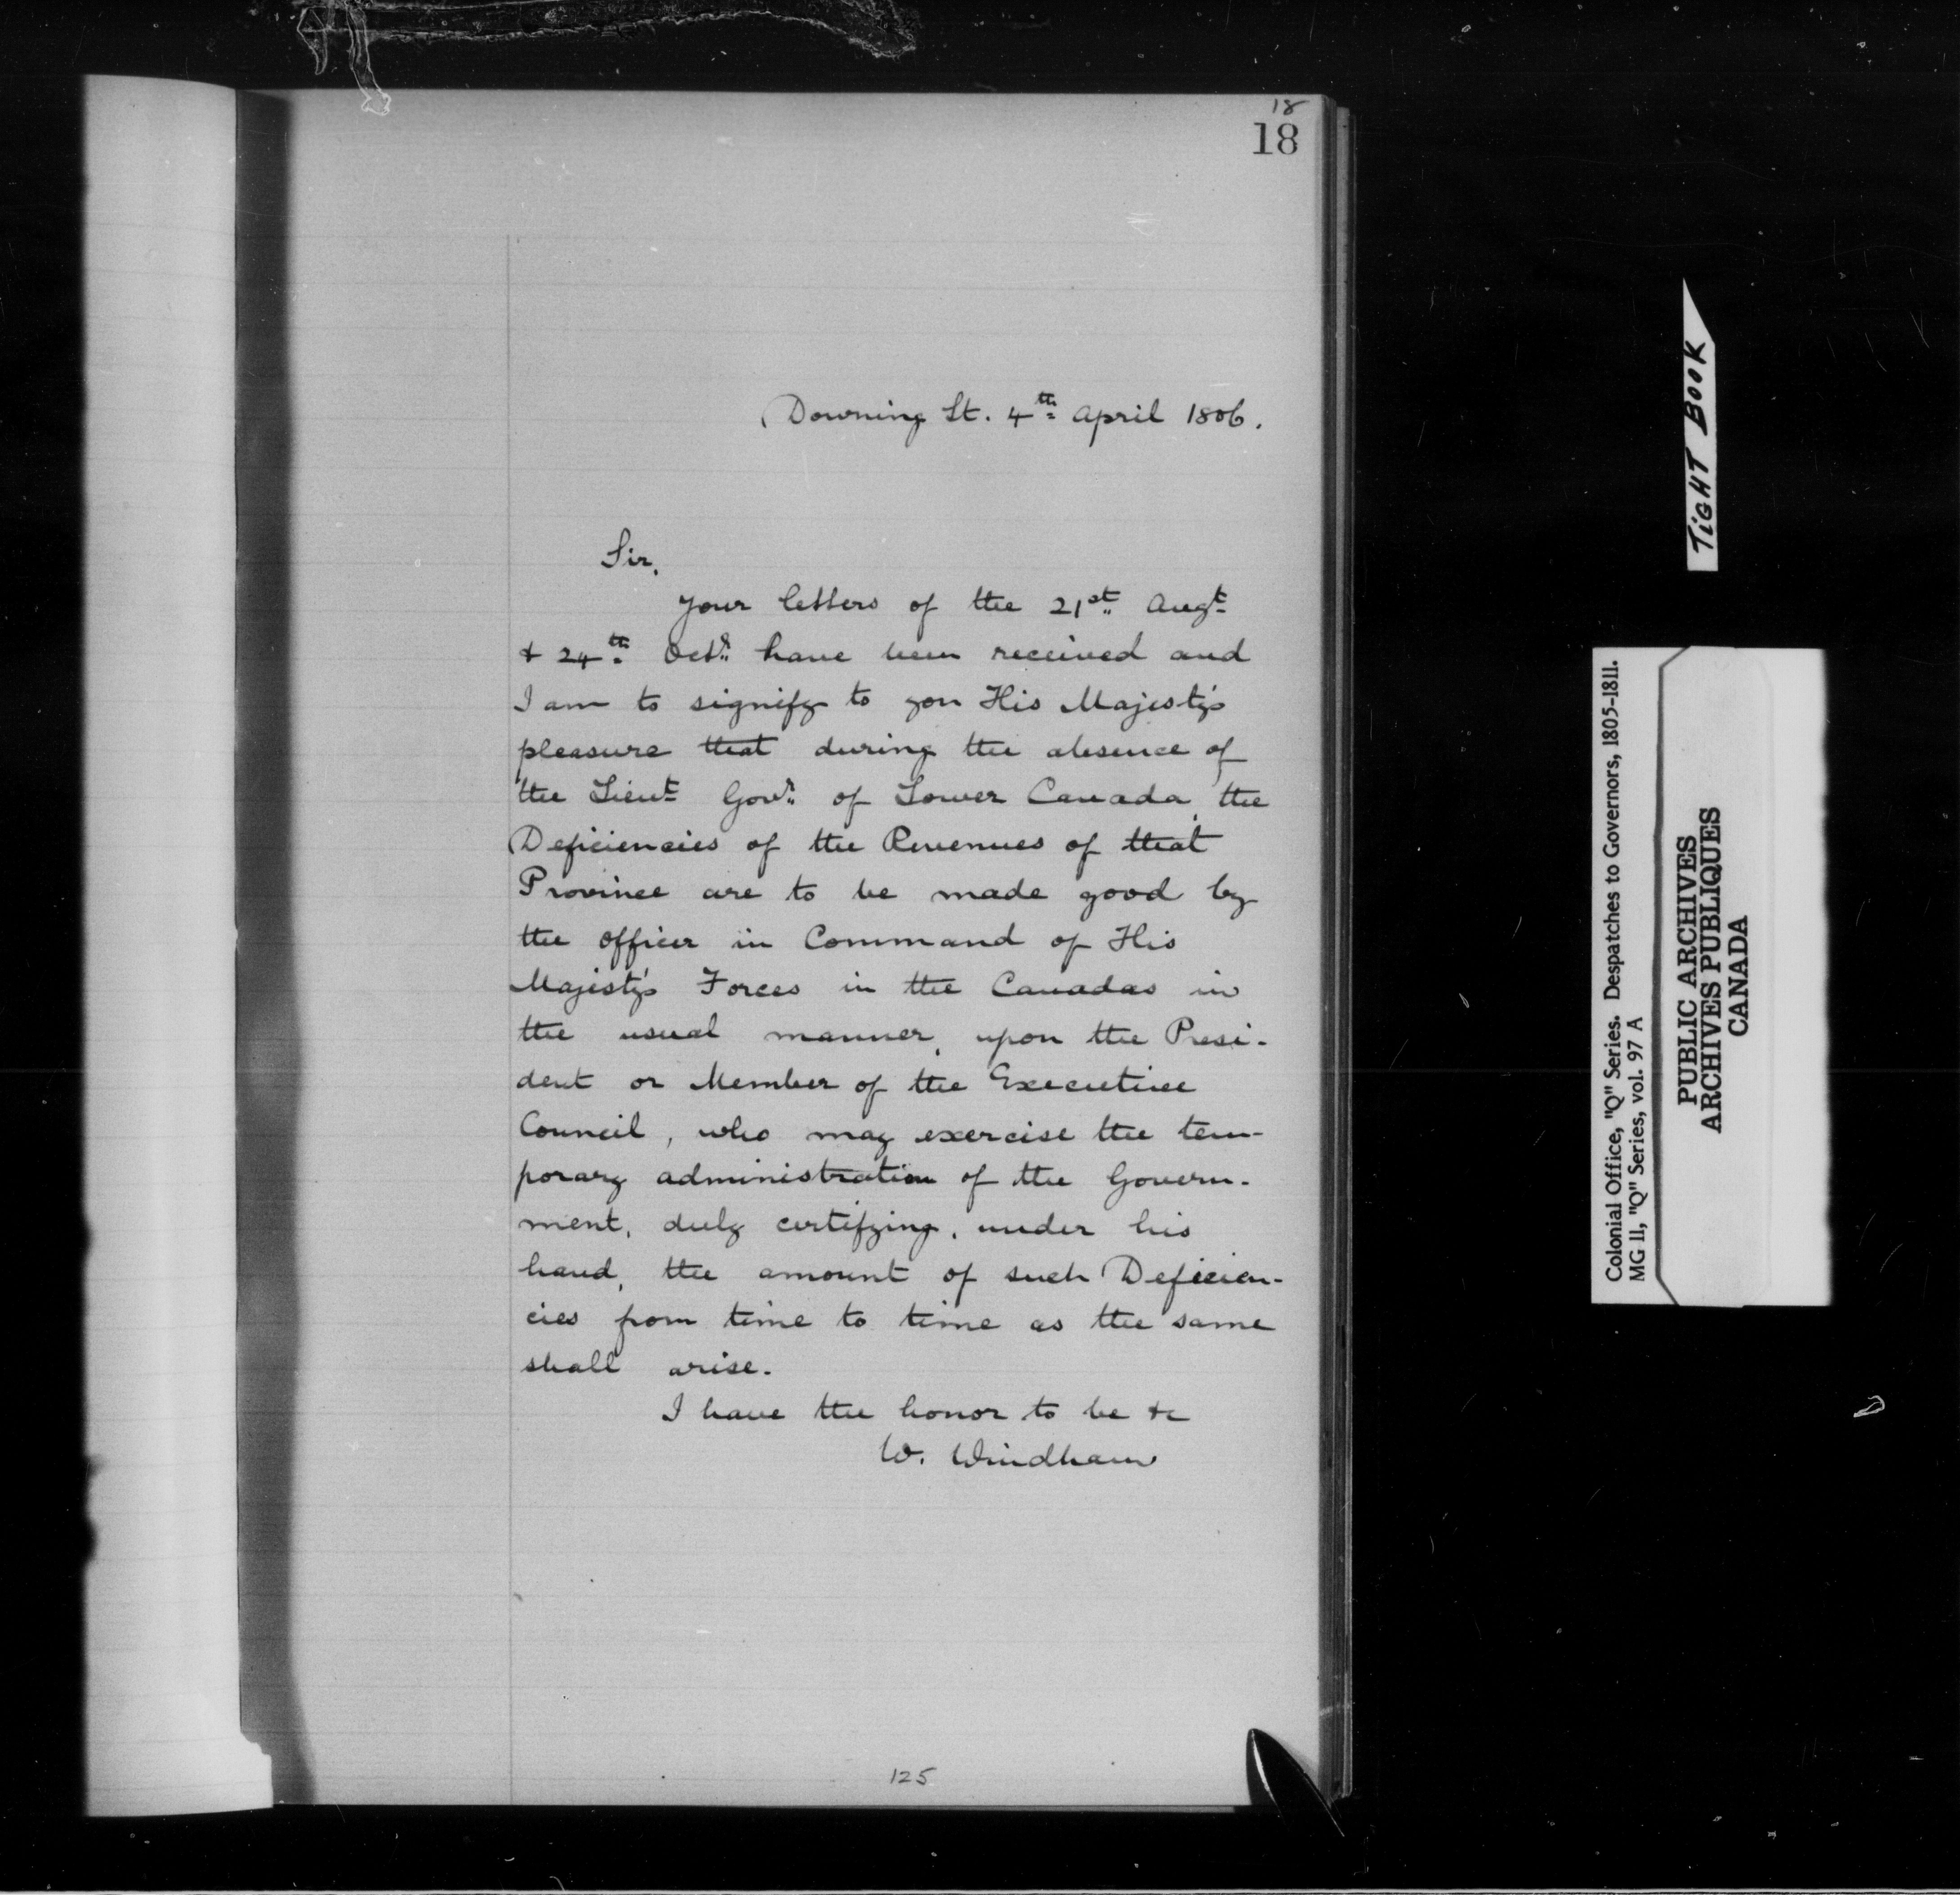 18
18
Downing St. 4th April 1806.
Sir,
Your letters of the 21st Augt
& 24th Octr have been received and
I am to signify to you His Majesty's
pleasure that during the absence of
the Lieut Govr of Lower Canada, the
Deficiencies of the Revenues of that
Province are to be made good by
the officer in Command of His
Majesty's Forces in the Canadas in
the usual manner, upon the Presi-
dent or Member of the Executive
Council, who may exercise the tem-
porary administration of the Govern-
ment, duly certifying, under his
hand, the amount of such Deficien-
cies from time to time as the same
shall arise.
I have the honor to be &c
W. Windham
125
TIGHT BOOK
Colonial Office, "Q" Series. Despatches to Governors, 1805-1811.
MG 11, "Q" Series, vol. 97 A
PUBLIC ARCHIVES
ARCHIVES PUBLIQUES
CANADA